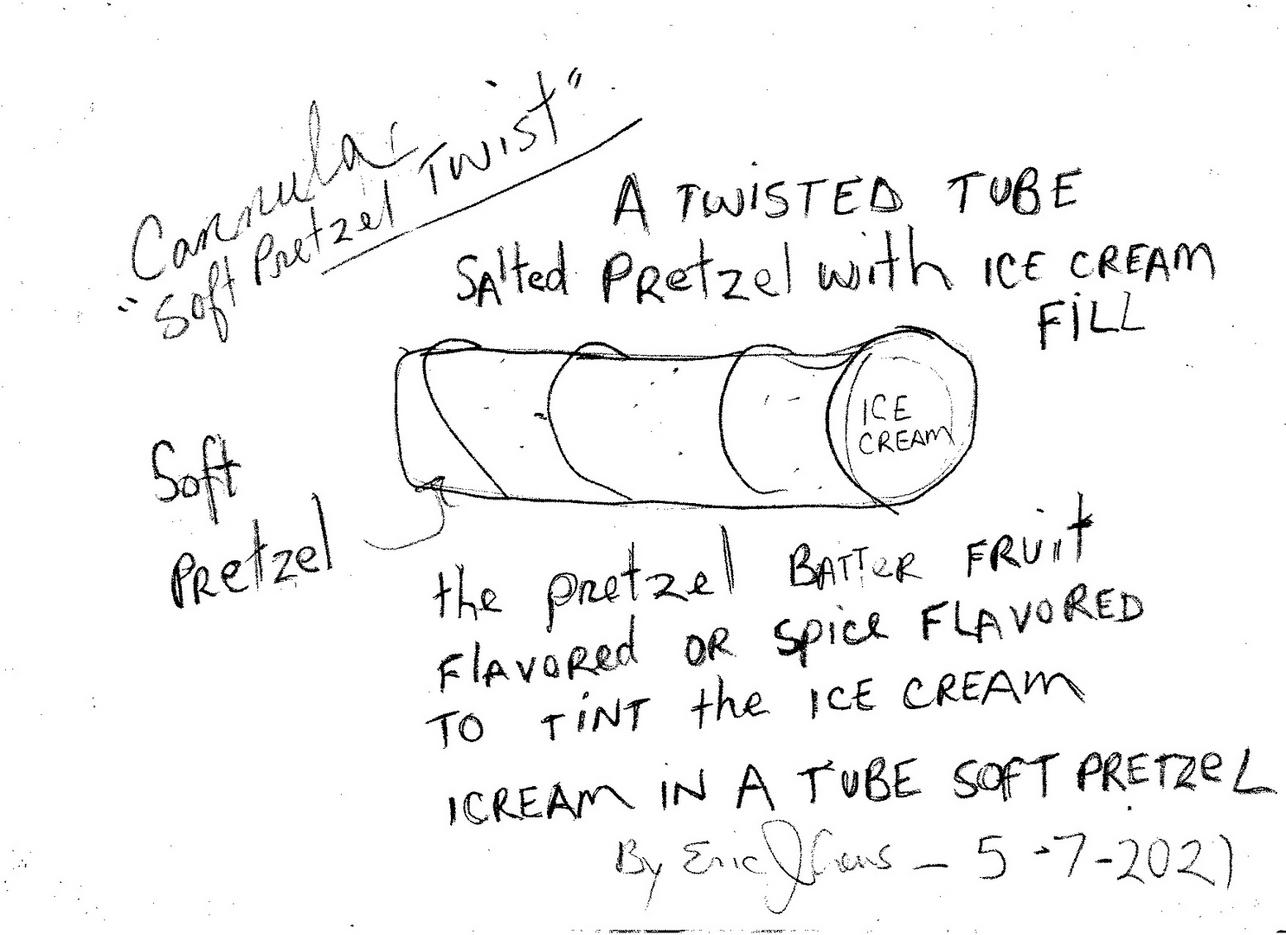 Cannular
"Soft Pretzel TWIST"
A TWISTED TUBE
SAlted PRetzel with ICE CREAM
FiLL
ICE
CREAM
Soft
PRetzel
the pretzel BATTeR FRUit
FlAVORed OR Spice FLAVORED
TO TiNT the ICE CREAM
ICREAM IN A TUBE SOFT PRETZeL
By Eric - 5-7-2021